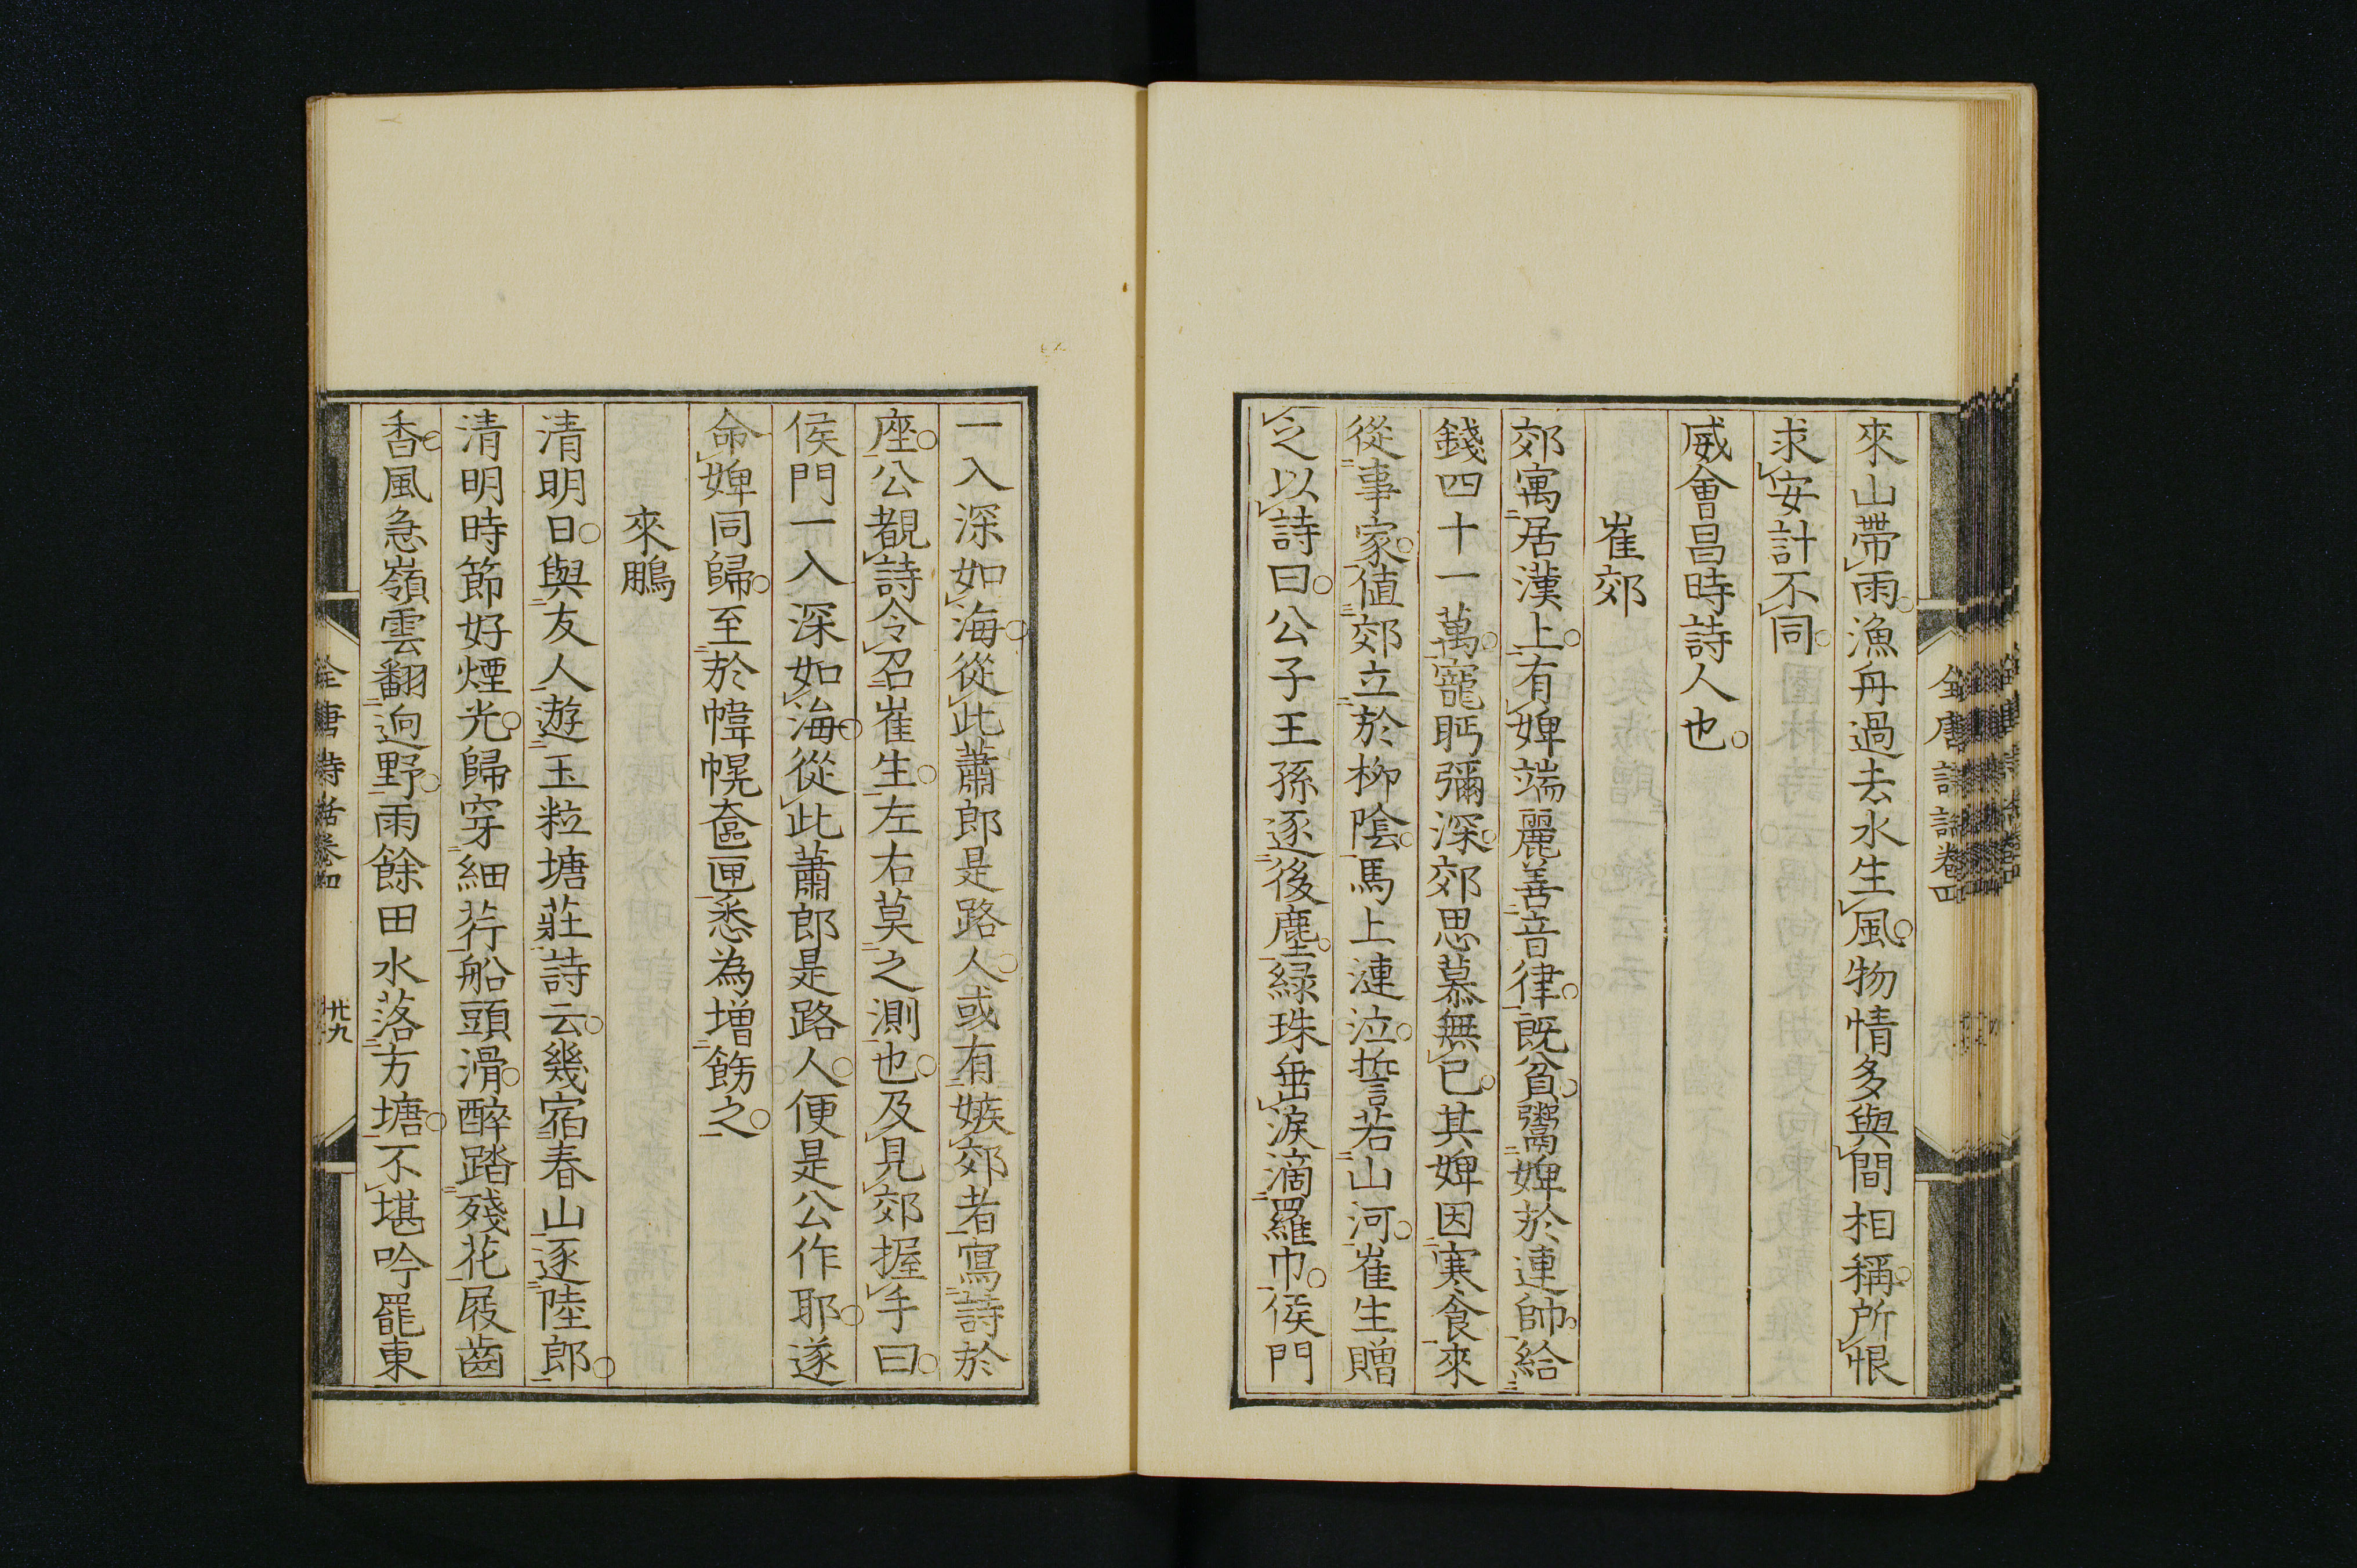 來山帶雨漁舟過去水生風物情多與閒相稱所恨
求安計不同
威會昌時詩人也
崔郊
郊寓居漢上有婢端麗善音律既貧鬻婢於連帥給
錢四十一萬寵眄彌深郊思慕無已其婢因寒食來
從事家值郊立於柳陰馬上漣泣誓若山河崔生贈
之以詩曰公子王孫逐後塵綠珠垂淚滴羅巾侯門
全唐詩話卷四
一入深如海從此蕭郎是路人或有嫉郊者寫詩於
座公覩詩令召崔生左右莫之測也及見郊握手曰
侯門一入深如海從此蕭郎是路人便是公作耶遂
命婢同歸至於幃幌奩匣悉為增餙之
來鵬
清明日與友人遊玉粒塘莊詩云幾宿春山逐陸郎
清明時節好煙光歸穿細荇船頭滑醉踏殘花屐齒
香風急嶺雲翻逈野雨餘田水落方塘不堪吟罷東
全唐詩話卷四
廿九